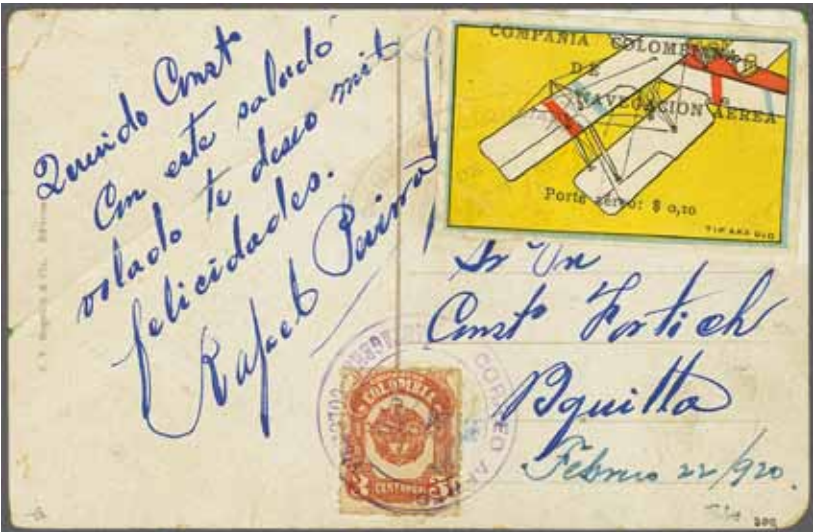 Querido Const°
Con este saludo
volado te deseo mil
felicidades.
Rafael
COMPAÑIA COLOMBIANA
DE
NAVEGACION AEREA
Porte aereo: $ 0,10
Sr Dn
Const° Fortich
Bquilla
Febrero 22/920.
CORREO AEREO
COLOMBIA
3 CENTAVOS 3